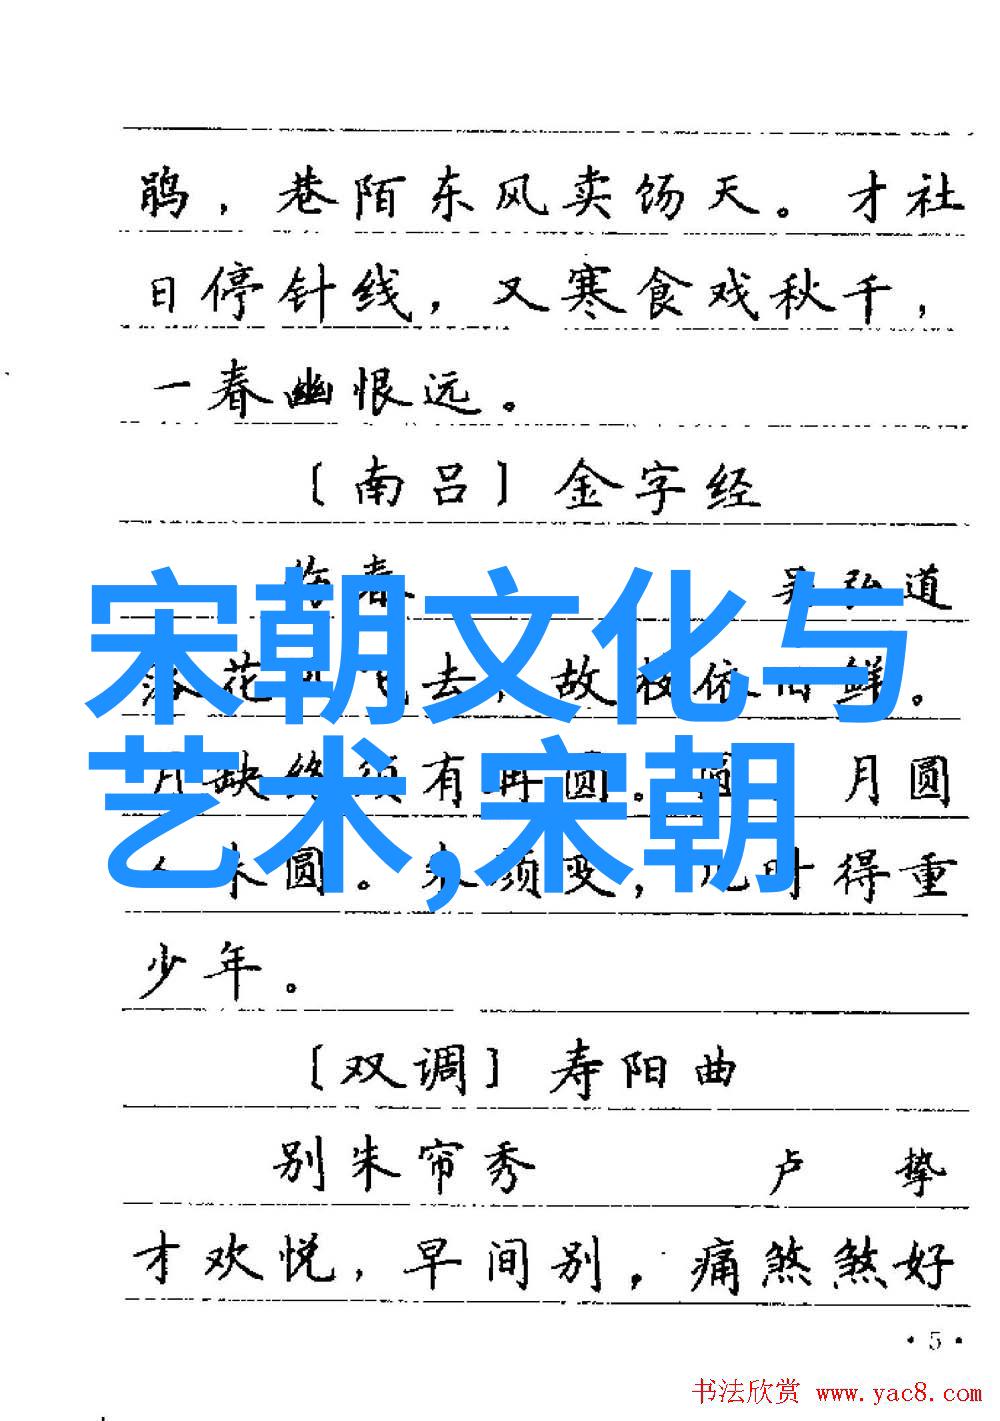 鹃，巷陌东风卖饧天。才社
日停针线，又寒食戏秋千，
一春幽恨远。
〔南吕〕金字经
春 吴弘道
宋朝文化与
花 去，故枝依旧鲜。
缺终须有再圆。圆 月圆
艺术,宋朝
圆。朱颜变，几时得重
少年。
〔双调〕寿阳曲
别朱帘秀 卢挚
才欢悦，早间别，痛煞煞好
·5·
书法欣赏 www.yac8.com